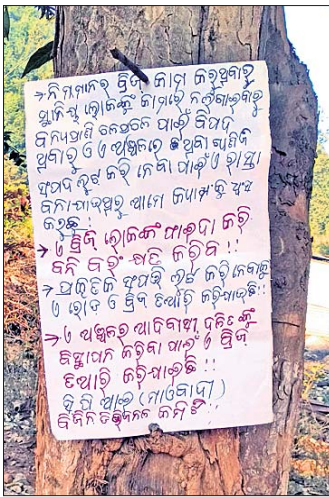 → ନିମ୍ନମାନର ବ୍ରିଜ୍ କାମ କରୁଥିବାରୁ
ସ୍ଥାନୀୟ ଲୋକଙ୍କୁ କାମରେ ନଲଗାଇବାରୁ
ବନ୍ୟପ୍ରାଣୀ ପାଇଁ ବିପଦ
ଥିବାରୁ ଏ ଅଞ୍ଚଳରେ ଥିବା ଖଣିଜ
ସଂପଦ ଲୁଟ୍ କରି ନେବା ପାଇଁ ଏ ରାସ୍ତା
ଆମେ କ୍ୟାମ୍ପକୁ
କରୁଛୁ !
→ ଏ ବ୍ରିଜ୍ ଲୋକଙ୍କ ଫାଇଦା କରି
ବନି ବରଂ କ୍ଷତି କରିବ !!
→ ପ୍ରାକୃତିକ ସଂପତ୍ତି ଲୁଟ୍ କରି ନେବାକୁ
ଏ ରୋଡ୍ ଏ ବ୍ରିଜ୍ ତିଆରି କରିଯାଉଛି !!
→ ଏ ଅଞ୍ଚଳର ଆଦିବାସୀ ଦଳିତଙ୍କୁ
ବିସ୍ଥାପନ କରିବା ପାଇଁ ଏ ବ୍ରିଜ୍
ତିଆରି କରିଯାଉଛି !!
ସି.ପି.ଆଇ (ମାଓବାଦୀ)
କମିଟି !!